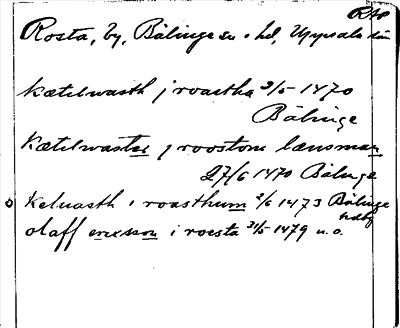 RAP
Rosta, by, Bälinge sn o hd, Uppsala län
kætilwasth j roastha 3/5 1470
Bälinge
kætilwastæ j roostom lænsman
27/6 1470 Bälinge
keluasth i roasthum 2/6 1473 Bälinge
hdbr
olaff ericsson i roesta 31/5 1479 u.o.